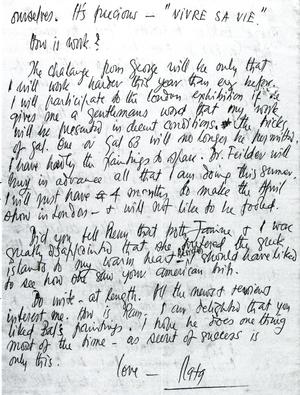 ourselves. It's precious – "VIVRE SA VIE."
How is work?
The challange from George will be only that
I will work harder this year than ever before.
I will participate to the London exhibition if he
gives me a gentlemans word that my work
will be presented in decent conditions. the tricks
of Gal. One or Gal 63 will no longer be permitted.
I have hardly the paintings to spare. Dr. Feilden will
buy in advance all that I am doing this summer.
I will just have 4 months, to make the April
show in London – & will not like to be fooled.
Did you tell that both & I was
greatly disappointed that she the greek
islands to my warm heart should have liked
to see how she saw your american trip.
Do write – at length. All the newest
interest me. How is I am delighted that you
liked paintings. I hope he does one thing
most of the time – as secret of success is
only this.
Love –